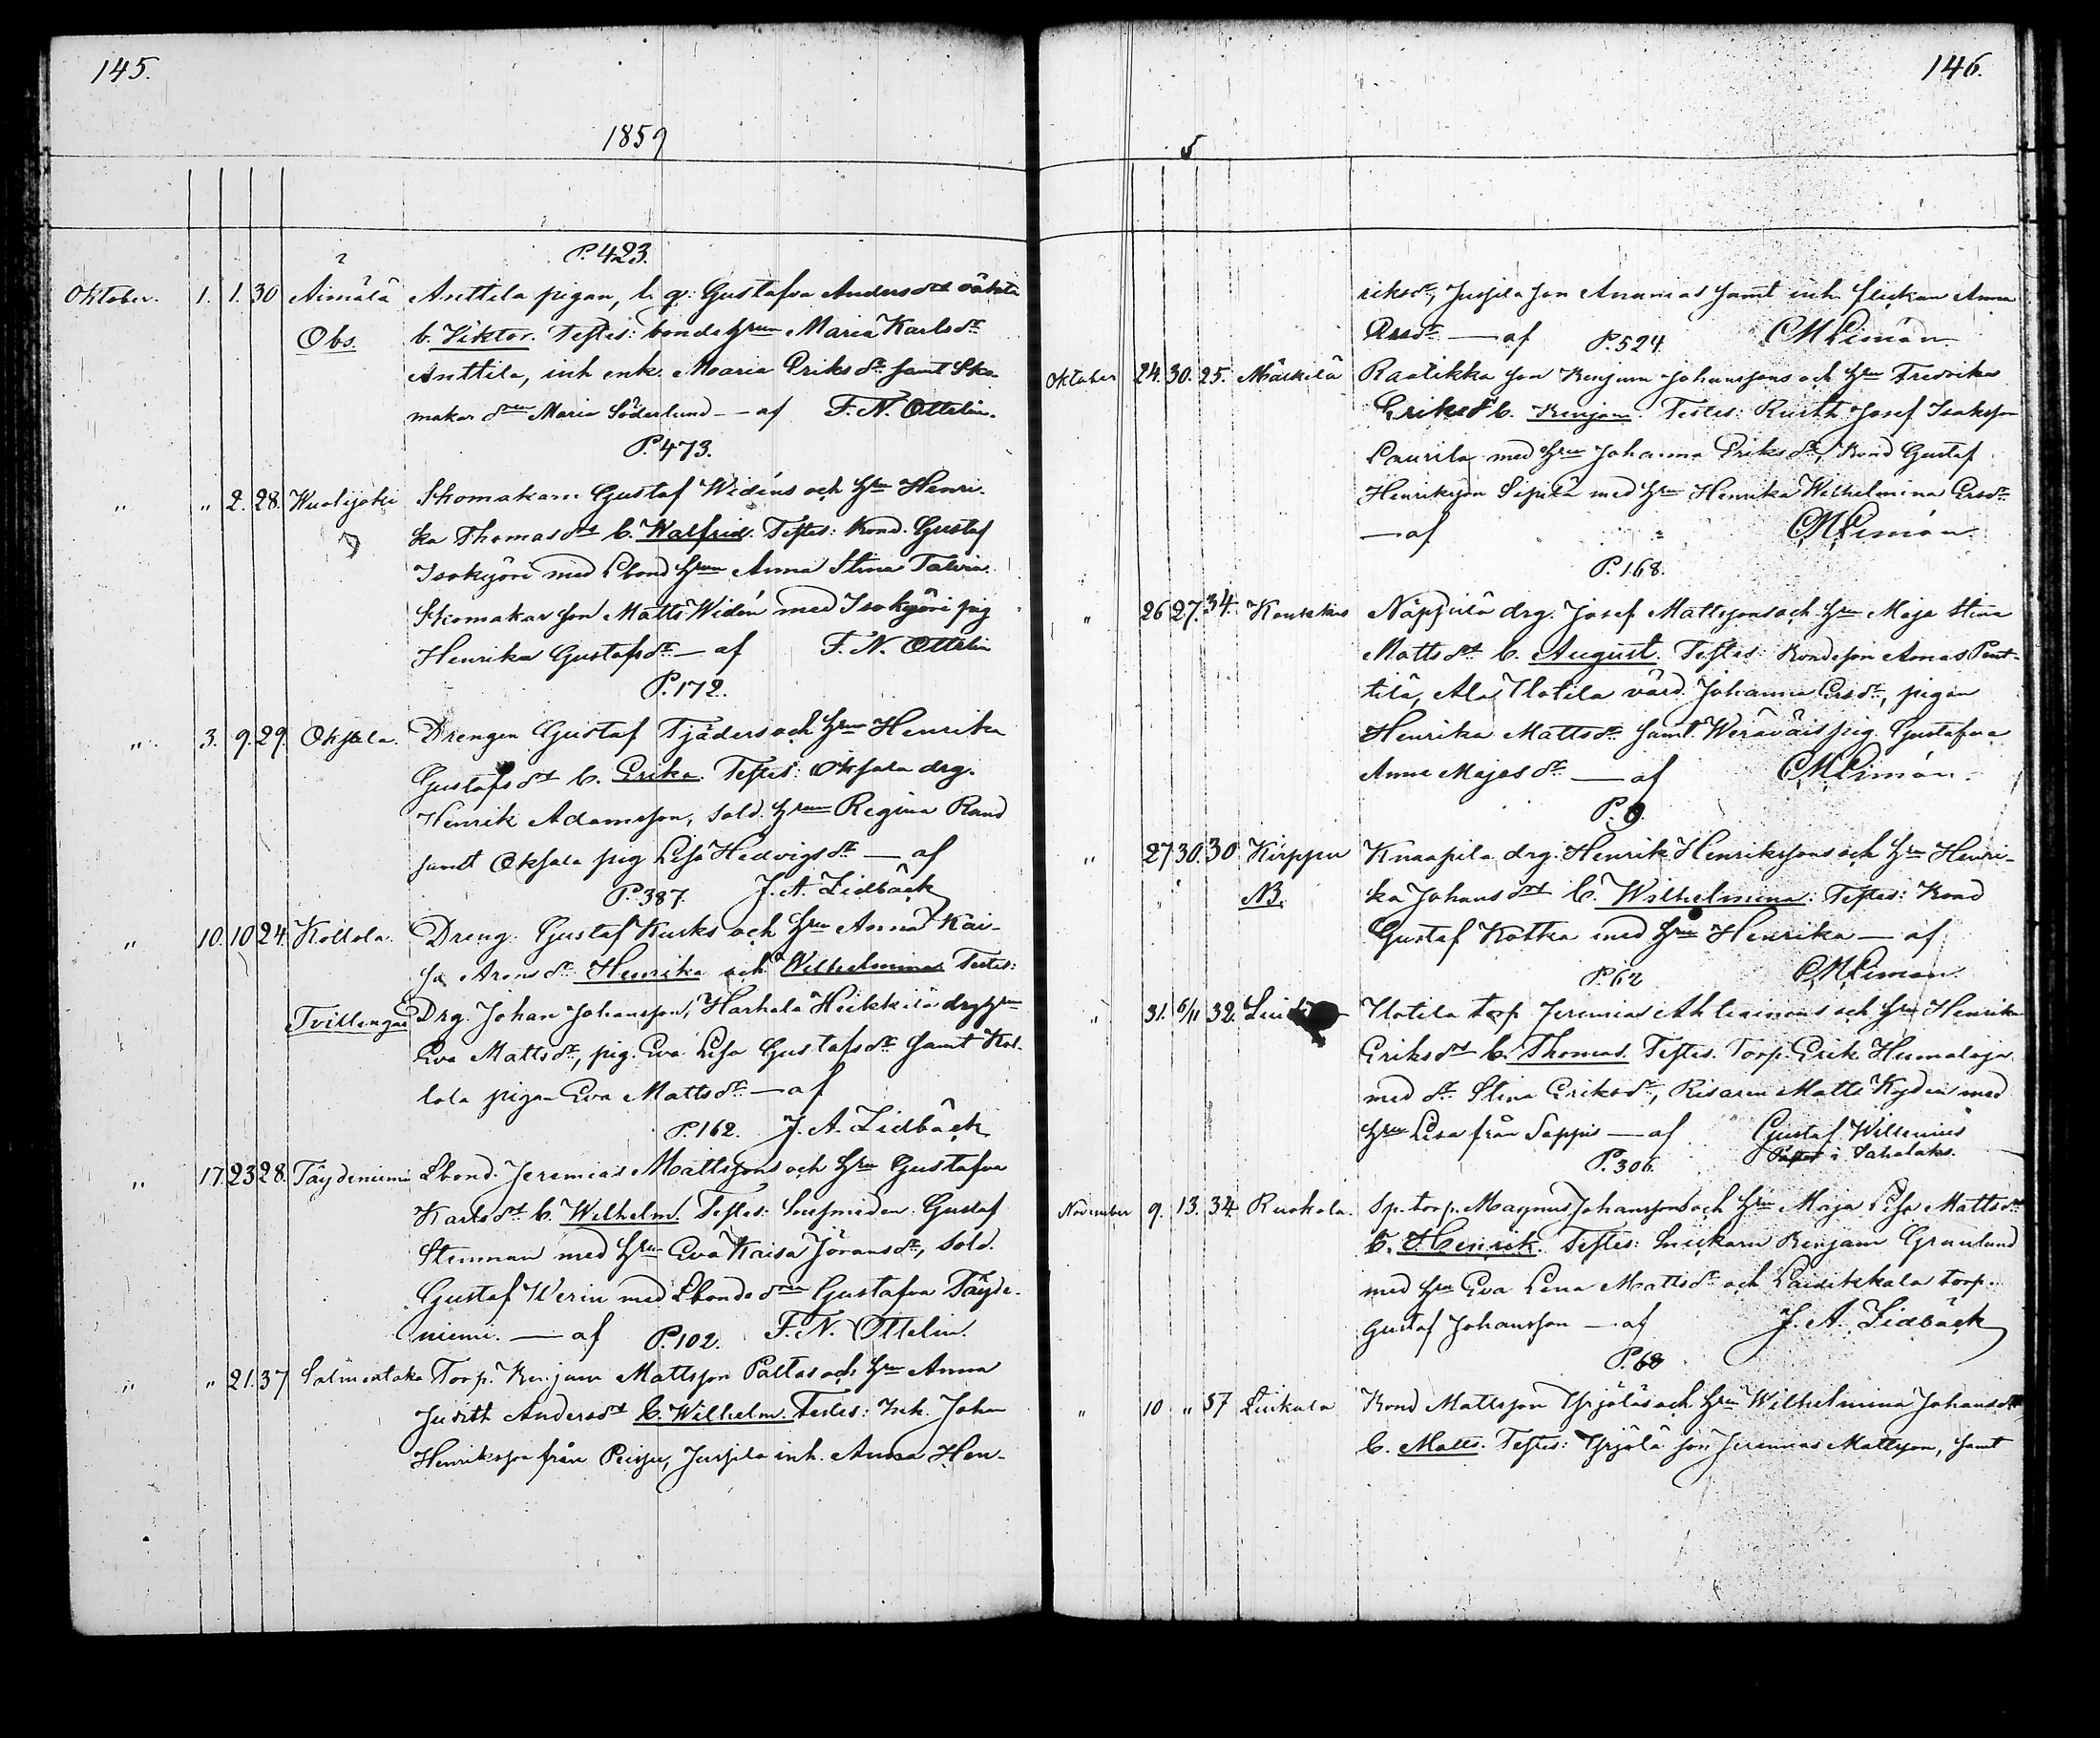 145.
1859
P. 423.
Oktober. 1. 1. 30 Aimälä Anttila pigan, l. q: Gustafva Andersdr oäkta
Obs. b. Viktor. Testes: bondehrun Maria Karlsdr
Anttila, inh. enk. Maria Eriksdr samt Sko-
makar drn Maria Söderlund — af F. N. Ottelin.
P. 473.
" " 2. 28. Skomakarn Gustaf Widéns och hru Henri-
ka Thomasdr b. Walfrid. Testes: Bond. Gustaf
Isokyöri med Lbond hrun Anna Stina
Skomakar son Matts Widén med Isokyöri pig
Henrika Gustafsdr — af F. N. Ottelin
P. 172.
" 3. 9. 29. Oksala. Drengen Gustaf Tjäders och hru Henrika
Gustafsdr b. Erika. Testes: Oksala drg.
Henrik Adamsson, sold. hrun Regina Rand
samt Oksala pig Lisa Hedvigsdr — af
P. 387. J. A. Lidbäck
" 10. 10 24. Kollola. Dreng. Gustaf Kusks och hru Anna Kai-
sa Aronsdr Henrika och Wilhelmina Testes:
Tvillingar Drg. Johan Johansson, Harhala Heikkilä drg hru
Eva Mattsdr, pig. Eva Lisa Gustafsdr samt Kol-
lola pigan Eva Mattsdr — af
P. 162. J. A. Lidbäck
" 17. 23 28. Täydeniemi Lbond. Jeremias Mattssons och hru Gustafva
Karlsdr b. Wilhelm. Testes: Gustaf
Stenman med hru Eva Kaisa Jöransdr, Sold.
Gustaf Werin med Lbonde drn Gustafva Täyde-
niemi. — af P. 102. F. N. Ottelin.
" " 21. 37 Salmentaka Torp. Benjam Mattsson Paltas och hru Anna
Judith Andersdr b. Wilhelm. Testes: Inh. Johan
Henriksson från Jussila inh. Anna Hen-
146.
5
riksdr, Jussila son Ananias samt inh. flickan Anna
Ersdr — af P. 524 C M Limón
Oktober 24. 30. 25. Mälkilä Raatikka son Benjam Johanssons och hru Fredrika
Eriksdr b. Benjam. Testes: Rusth. Josef Isaksson
Laurila med hru Johanna Eriksdr, Bond Gustaf
Henriksson Sipilä med hru Henrika Wilhelmina Ersdr
— af C M Limón
P. 168.
" 26 27. 34. Koukkus Näppilä drg. Josef Mattssons och hru Maja Stina
Mattsdr b. August. Testes: Bondeson Pent-
tilä, Ala Ylotila värd. Johanna Ersdr, pigan
Henrika Mattsdr samt pig. Gustafva
Anna Majasdr — af C M Limón.
P.
" 27 30. 30 Kirppu Knaapila drg. Henrik Henrikssons och hru Henri-
NB. ka Johansdr b. Wilhelmina. Testes: Bond
Gustaf Kotka med hru Henrika — af
P. 62 C M Limón
" 31. 6/11 32. Ylotila torp Jeremias Ahtiainens och hru Henrika
Eriksdr b. Thomas. Testes. Torp. Erik Humaloja
med dr Stina Eriksdr, Matts Kydén med
hru Lisa från Sappi — af Gustaf Willenius
P. 306. Pastor i Sahalaks.
November 9. 13. 34. Ruokola. Sp. torp. Magnus Johanssons och hru Maja Lisa Mattsdr
b. Henrik. Testes: Snickarn Benjam Granlund
med hru Eva Lena Mattsdr och torp.
Gustaf Johansson — af J. A. Lidbäck
P. 68
" 10 " 37 Liukala Bond Mattsson Yrjöläs och hru Wilhelmina Johansdr
b. Matts. Testes: Yrjölä son Jeremias Mattsson, samt